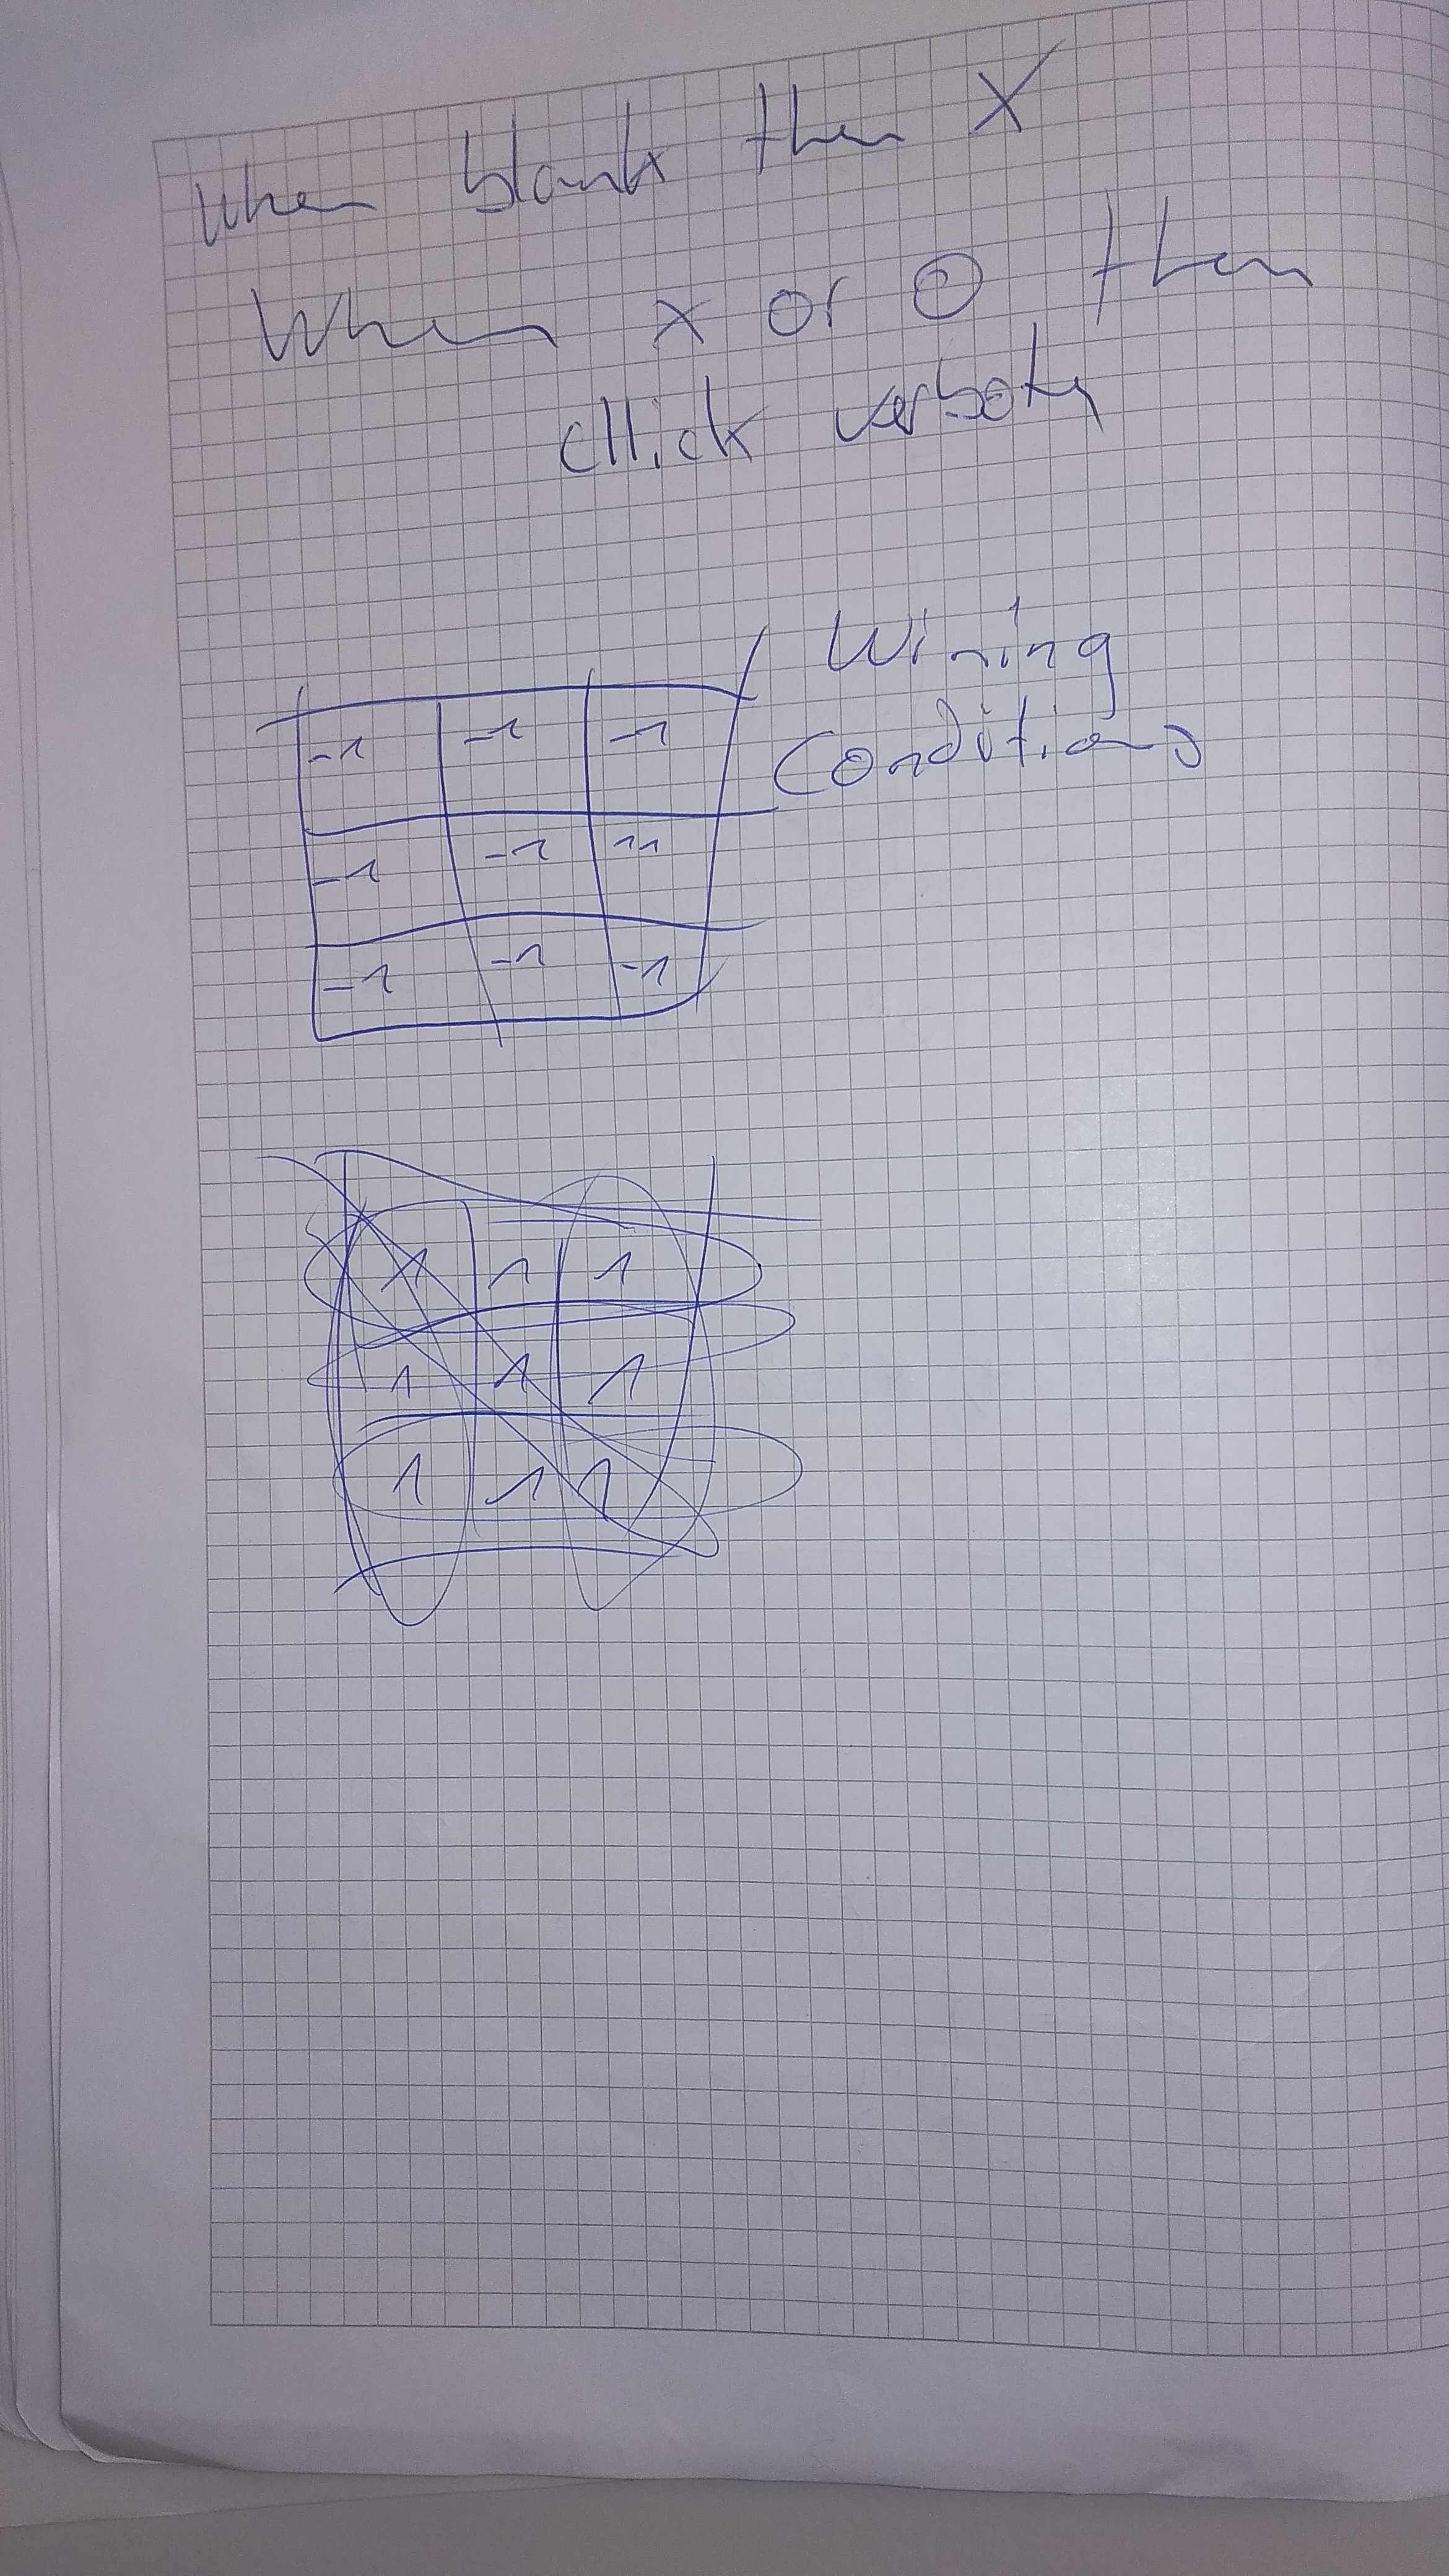 when blank then X
When x or O then
cllick verboten
Wining
Conditions
-1 -1 -1
-1 -1 -1
-1 -1 -1
1 1 1
1 1 1
1 1 1